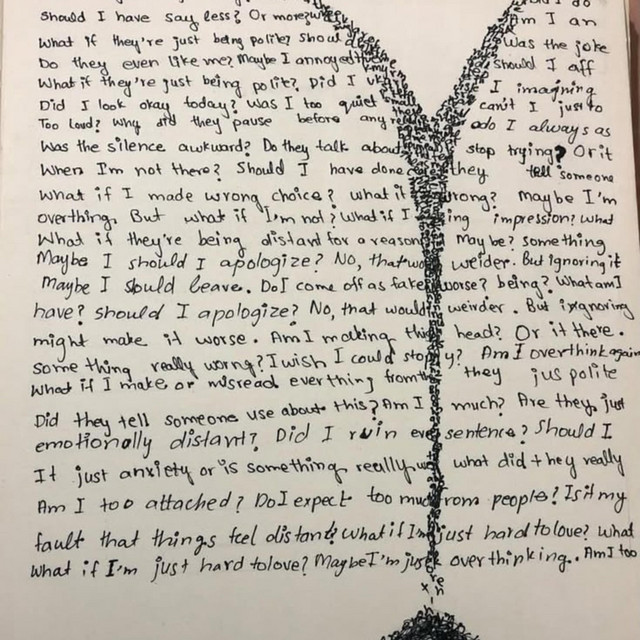 Should I have say less? Or more?
Am I an
What if they're just being polite? Shoul
Was the joke
Do they even like me? Maybe I annoyed
should I aff
What if they're just being polit? Did I
I imagining
Did I look okay today? Was I too quiet
can't I just to
Too loud? Why did they pause before any
do I always as
Was the silence awkward? Do they talk about
stop trying? Or it
When I'm not there? Should I have done
they tell someone
What if I made wrong choice? what if
wrong? Maybe I'm
overthing. But what if I'm not? What if I
ing impression? What
What if they're being distant for a reason
May be? something
Maybe I should I apologize? No, that wo
weider. But ignoring it
Maybe I should leave. Do I come off as fake
worse? being? What am I
have? should I apologize? No, that would
weirder. But ignoring
might make it worse. Am I making thi
head? Or it there.
some thing really worng? I wish I could stop
y? Am I overthink again
What if I make or misread everthing from
they jus polite
Did they tell someone use about this? Am I
much? Are they just
emotionally distant? Did I ruin eve
sentence? Should I
It just anxiety or is something really
what did they really
Am I too attached? Do I expect too muc
rom people? Is it my
fault that things feel distant? What if I'm
just hard to love? What
What if I'm just hard to love? Maybe I'm jus
overthinking.. Am I too